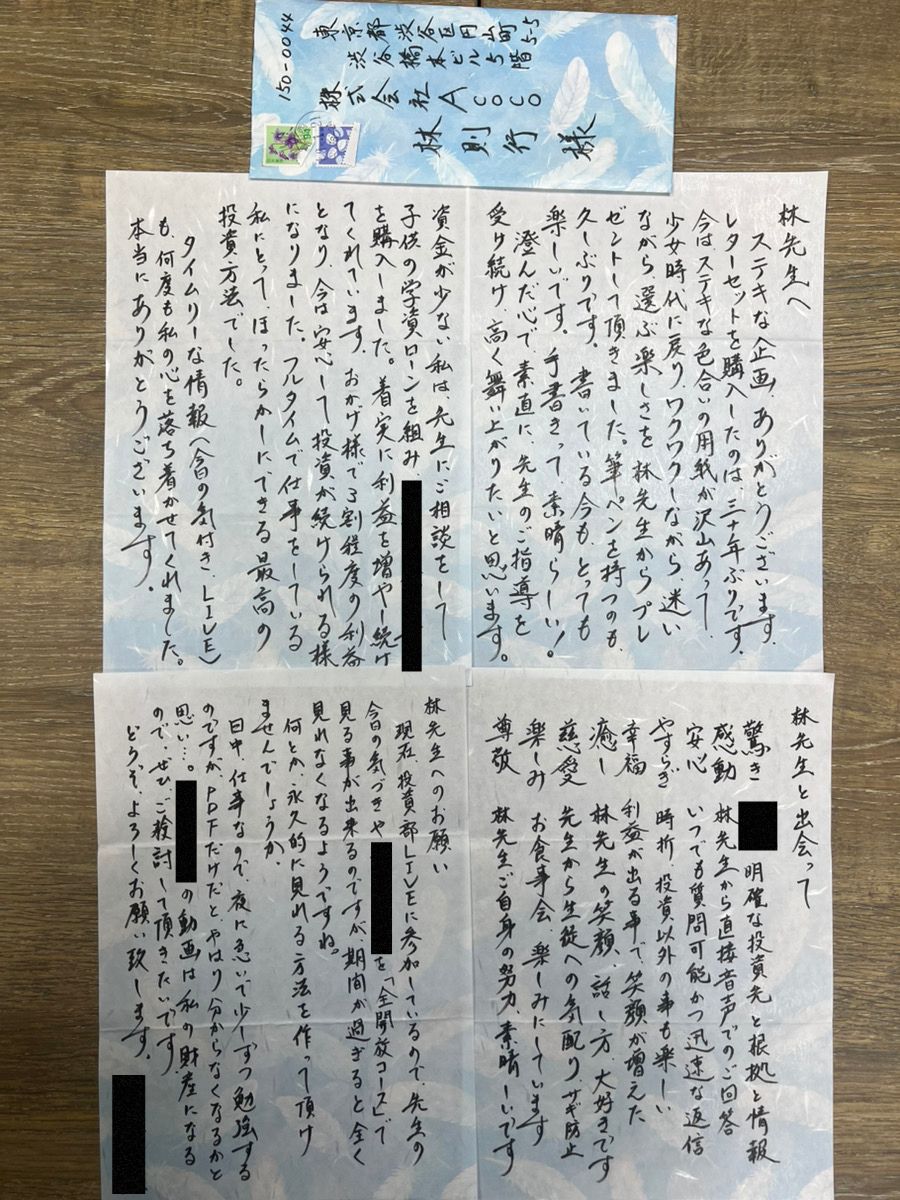 150-0044
東京都渋谷区円山町5-5
渋谷橋本ビル5階
株式会社Acoco
林則行様
林先生へ
ステキな企画、ありがとうございます。
レターセットを購入したのは、三十年ぶりです。
今はステキな色合いの用紙が沢山あって、
少女時代に戻り、ワクワクしながら、迷い
ながら、選ぶ楽しさを林先生からプレ
ゼントして頂きました。筆ペンを持つのも、
久しぶりです。書いている今も、とっても
楽しいです。手書きって、素晴らしい!
澄んだ心で、素直に、先生のご指導を
受け続け、高く舞い上がりたいと思います。
資金が少ない私は、先生にご相談をして
子供の学資ローンを組み、
を購入しました。着実に利益を増やし続け
てくれています。おかげ様で3割程度の利益
となり、今は安心して投資が続けられる様
になりました。フルタイムで仕事をしている
私にとって、ほったらかしにできる最高の
投資方法でした。
タイムリーな情報(今日の気付き、LIVE)
も、何度も私の心を落ち着かせてくれました。
本当にありがとうございます。
林先生と出会って
驚き 明確な投資先と根拠と情報
感動 林先生から直接音声でのご回答
安心 いつでも質問可能かつ迅速な返信
やすらぎ 時折、投資以外の事も楽しい
幸福 利益が出る事で、笑顔が増えた
癒し 林先生の笑顔、話し方、大好きです
慈愛 先生から生徒への気配りサギ防止
楽しみ お食事会、楽しみにしています
尊敬 林先生ご自身の努力、素晴しいです
林先生へのお願い
現在、投資部LIVEに参加しているので、先生の
今日の気づきや を「全開放コース」で
見る事が出来るのですが、期間が過ぎると全く
見れなくなるようですね。
何とか、永久的に見れる方法を作って頂け
ませんでしょうか、
日中、仕事なので、夜に急いで少しずつ勉強する
のですが、PDFだけだと、やはり分からなくなるかと
思い…。 の動画は私の財産になる
ので、ぜひ、ご検討して頂きたいです。
どうぞ、よろしくお願い致します。